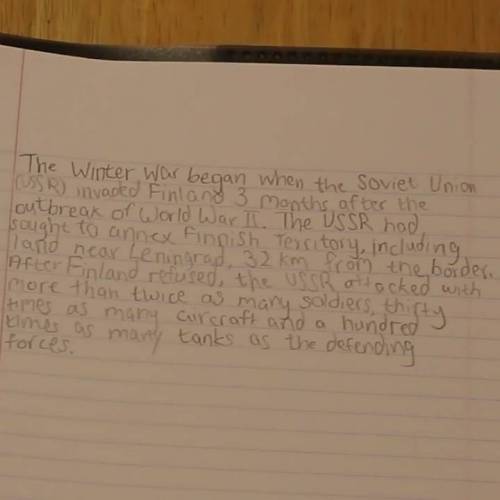 The Winter War began when the Soviet Union
(USSR) invaded Finland 3 months after the
outbreak of World War II. The USSR had
sought to annex Finnish Territory, including
land near Leningrad, 32 km from the border.
After Finland refused, the USSR attacked with
more than twice as many soldiers, thirty
times as many aircraft and a hundred
times as many tanks as the defending
forces.